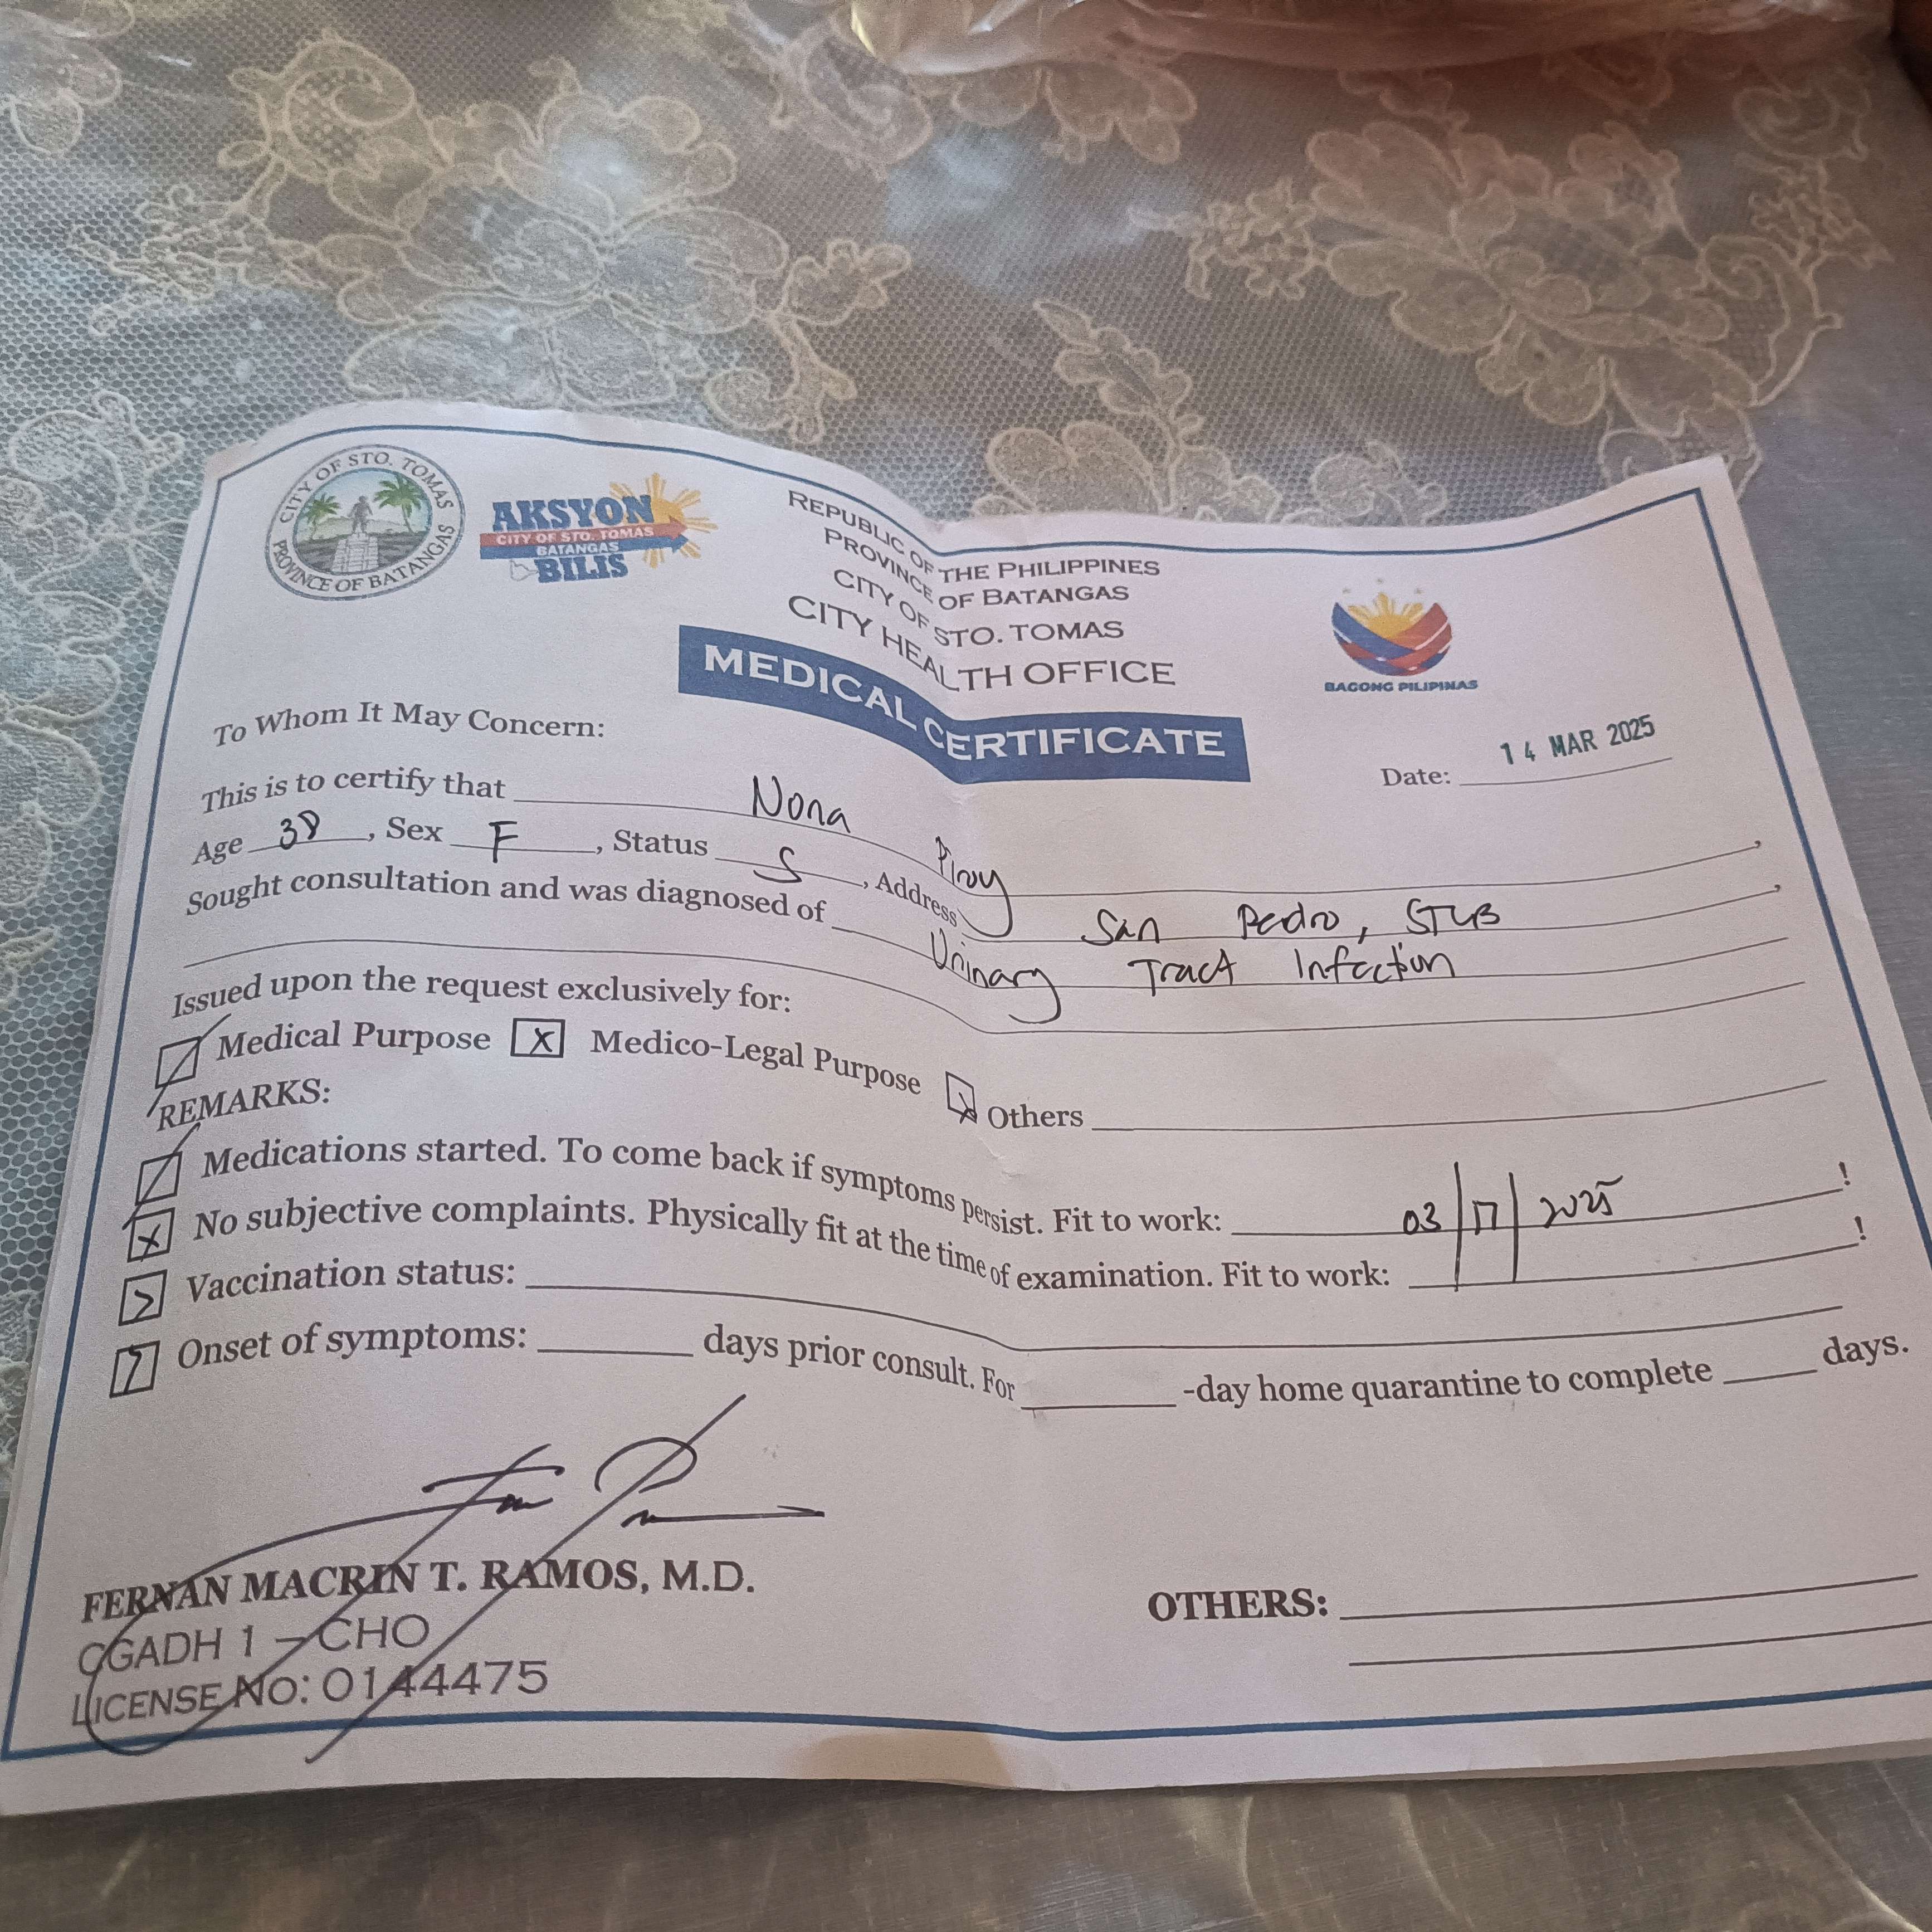 CITY OF STO. TOMAS
PROVINCE OF BATANGAS
AKSYON
CITY OF STO. TOMAS
BATANGAS
BILIS
REPUBLIC OF THE PHILIPPINES
PROVINCE OF BATANGAS
CITY OF STO. TOMAS
CITY HEALTH OFFICE
BAGONG PILIPINAS
MEDICAL CERTIFICATE
To Whom It May Concern:
Date: 14 MAR 2025
This is to certify that Nona
Age 38, Sex F, Status S, Address San Pedro, STB
Sought consultation and was diagnosed of Urinary Tract Infection
Issued upon the request exclusively for:
Medical Purpose x Medico-Legal Purpose x Others
REMARKS:
Medications started. To come back if symptoms persist. Fit to work: 03/17/2025!
x No subjective complaints. Physically fit at the time of examination. Fit to work: !
Vaccination status:
Onset of symptoms: days prior consult. For -day home quarantine to complete days.
FERNAN MACRIN T. RAMOS, M.D.
CGADH 1 – CHO
LICENSE NO: 0144475
OTHERS: